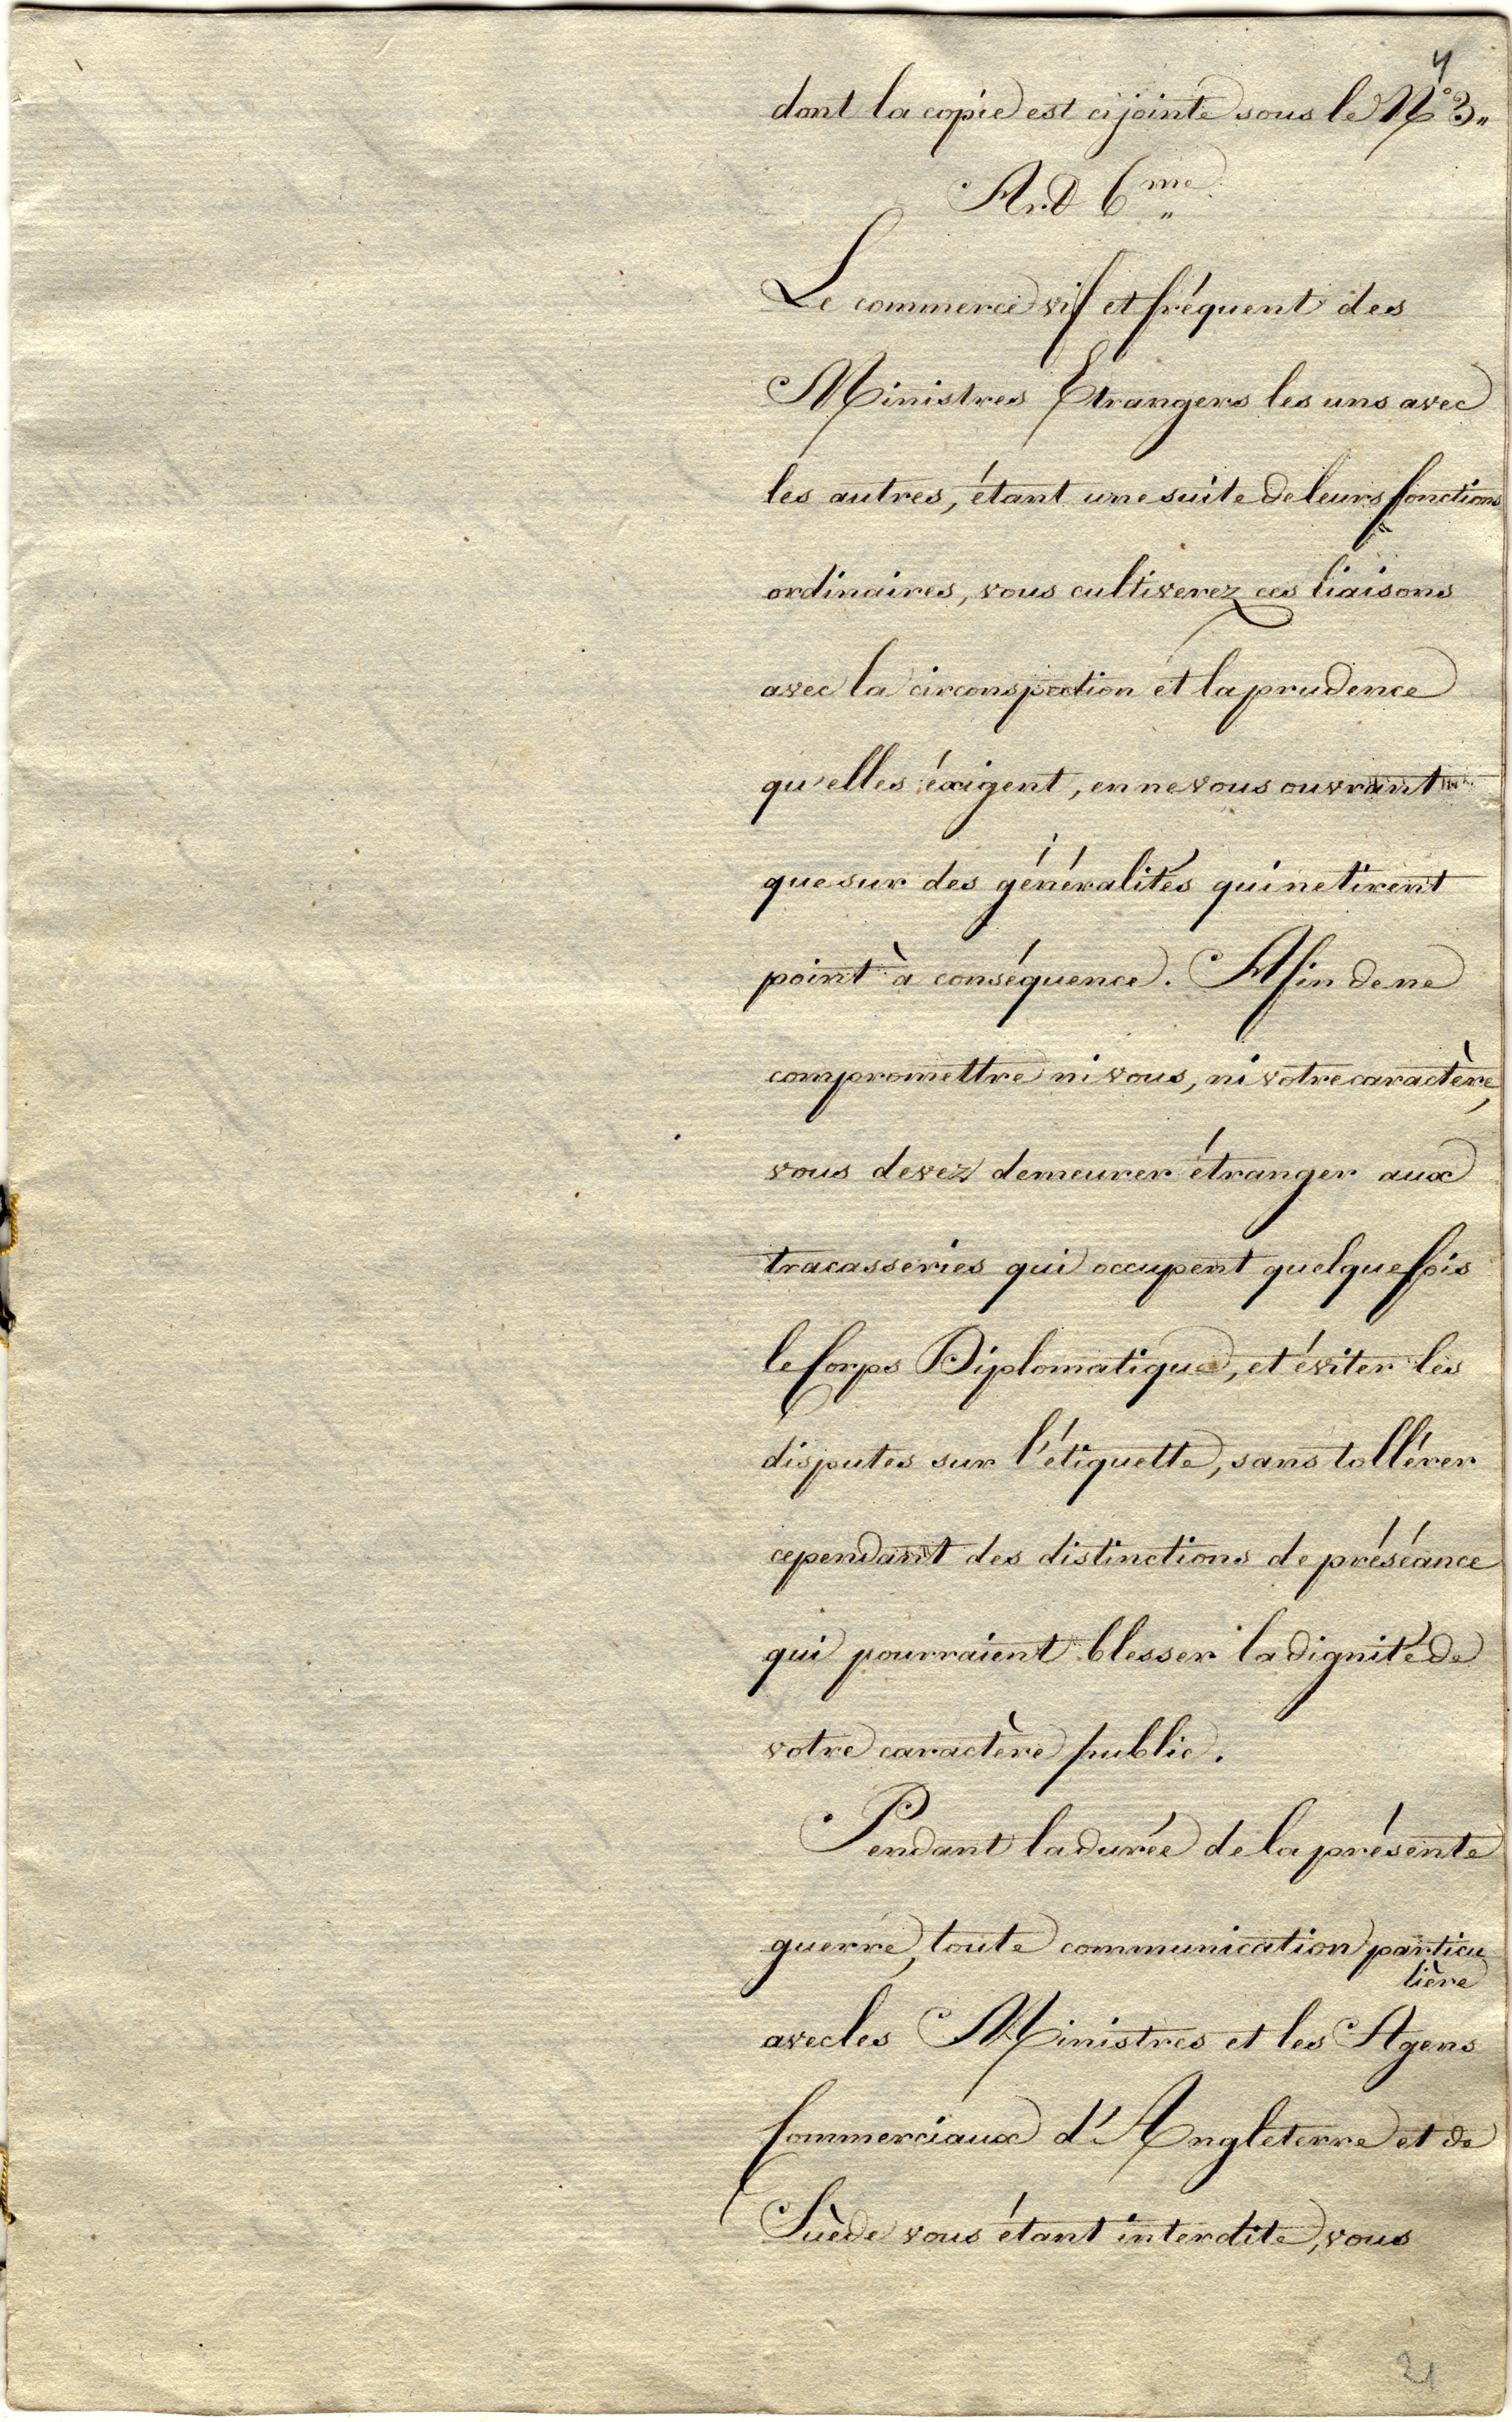 4
dont la copie est ci jointe sous le N° 3.,
Art 6me
Le commerce vif et fréquent des
Ministres Etrangers les uns avec
les autres, étant une suite de leurs fonctions
ordinaires, vous cultiverez ces liaisons
avec la circonspection et la prudence
qu'elles éxigent, en ne vous ouvrant
que sur des généralités qui ne tirent
point à conséquence. Afin de ne
compromettre ni vous, ni votre caractère,
vous devez demeurer étranger aux
tracasseries qui occupent quelquefois
le Corps Diplomatique, et éviter les
disputes sur l'étiquette, sans tollérer
cependant des distinctions de préséance
qui pourraient blesser la dignité de
votre caractère public.
Pendant la durée de la présente
guerre, toute communication particu
lière
avec les Ministres et les Agens
Commerciaux d'Angleterre et de
Suède vous étant interdite, vous
21